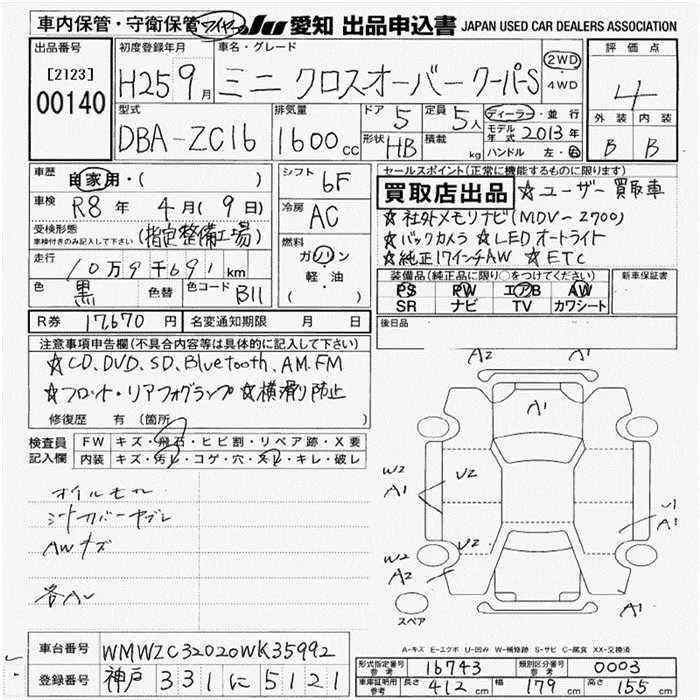 車内保管・守衛保管 ワイヤー JU 愛知 出品申込書 JAPAN USED CAR DEALERS ASSOCIATION
出品番号 初度登録年月 車名・グレード 評価点
[2123] H25 9月 ミニ クロスオーバー クーパーS 2WD・4WD 4
00140
型式 排気量 ドア 5 定員 5人 ディーラー・並行 外装 内装
DBA-ZC16 1600cc 形状 HB 積載 kg モデル年式 2013年 B B
ハンドル 左・右
車歴 自家用・( ) シフト 6F セールスポイント(正常に機能するものに限ります)
車検 R8年 4月(9日) 冷房 AC 買取店出品 ☆ユーザー買取車
受検形態 (指定整備工場) ☆社外メモリナビ(MDV-2700)
車検付きのみ記入して下さい
走行 10万9千691km 燃料 ガソリン・軽油 ( ) ☆バックカメラ ☆LEDオートライト
☆純正17インチAW ☆ETC
色 黒 色替 色コード B11 装備品(純正品に限り○をつけてください) 新車保証書
PS PW エアB AW
SR ナビ TV カワシート
R券 17,670円 名変通知期限 月 日 後日品
注意事項申告欄(不具合内容等は具体的に記入して下さい)
☆CD、DVD、SD、Bluetooth、AM、FM
☆フロント・リアフォグランプ ☆横滑り防止
修復歴 有(箇所
検査員記入欄 FW キズ・飛石・ヒビ割・リペア跡・X要
内装 キズ・汚レ・コゲ・穴・スレ・キレ・破レ
オイルモレ
シートカバーヤブレ
AWキズ
A2 A1
A1
W2 A1 U2 U1 A1
W2 A2 U2 A1
スペア
A-キズ E-エクボ U-凹み W-補修跡 S-サビ C-腐食 XX-交換済
車台番号 WMWZC32020WK35992
登録番号 神戸 331 に 5121
形式指定番号 参考 16743 類別区分番号 参考 0003
車庫証明用 参考 長さ 412cm 幅 179cm 高さ 155cm